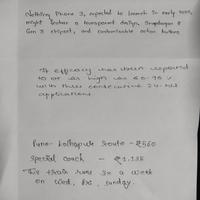 Nothing Phone 3, expected to launch in early 2025,
might feature a transparent design, Snapdragon 8
Gen 3 chipset, and customisable action button
It efficacy has been reported
to be as high as 60-70 %
with three consecutive 24-hr
applications.
Pune- Kolhapur route - ₹560
Special coach - ₹1,135
This train runs 3x a week
on Wed, Fri, Sunday.